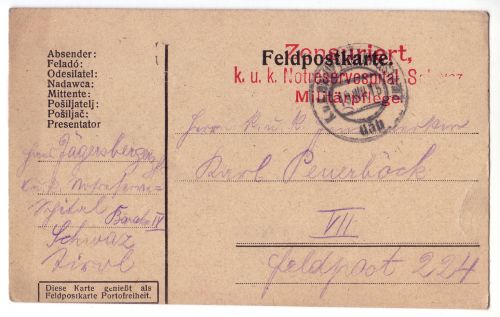 Absender:
Feladó:
Odesílatel:
Nadawca:
Mittente:
Pošiljatelj:
Pošiljač:
Presentator
Feldpostkarte.
Zensuriert,
k. u. k. Notreservespital, Schwaz
Militärpflege
Jägersberger
k. u. k. Notreserve-
Spital Barake IV
Schwaz
Tirol
Herrn k. u. k.
Karl Peuerböck
VII
Feldpost 224
Diese Karte genießt als
Feldpostkarte Portofreiheit.